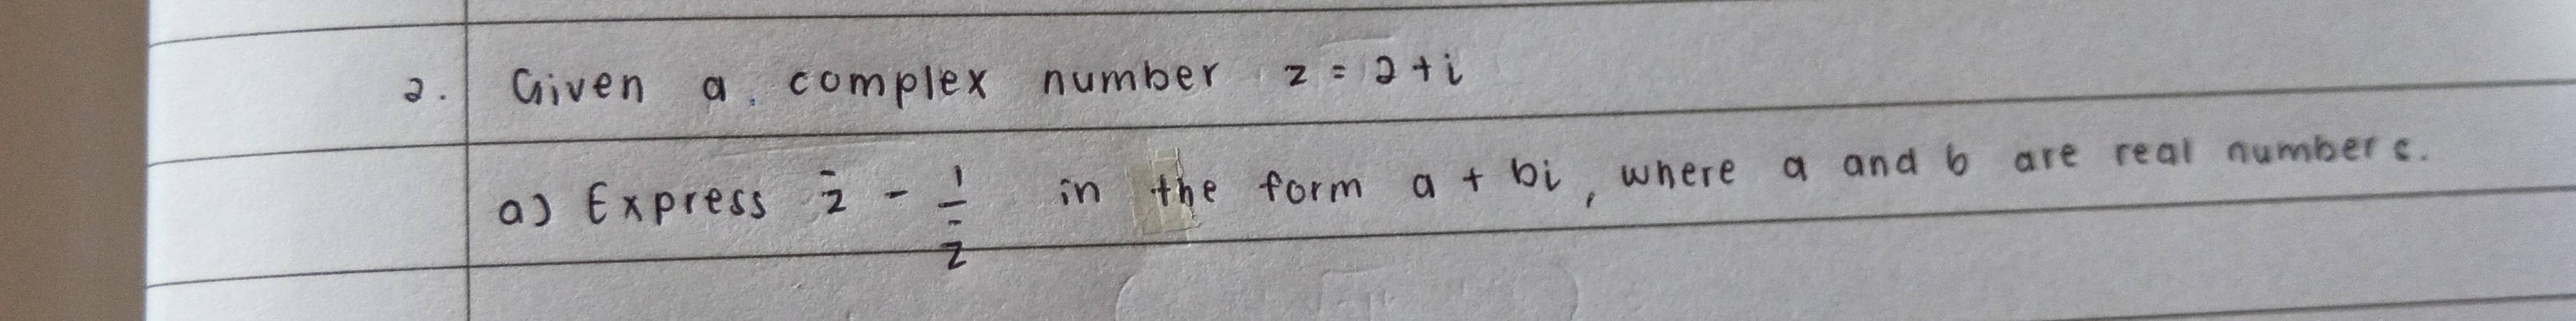 2. Given a complex number z = 2 + i
a) Express z̄ - 1/z̄ in the form a + bi, where a and b are real numbers.